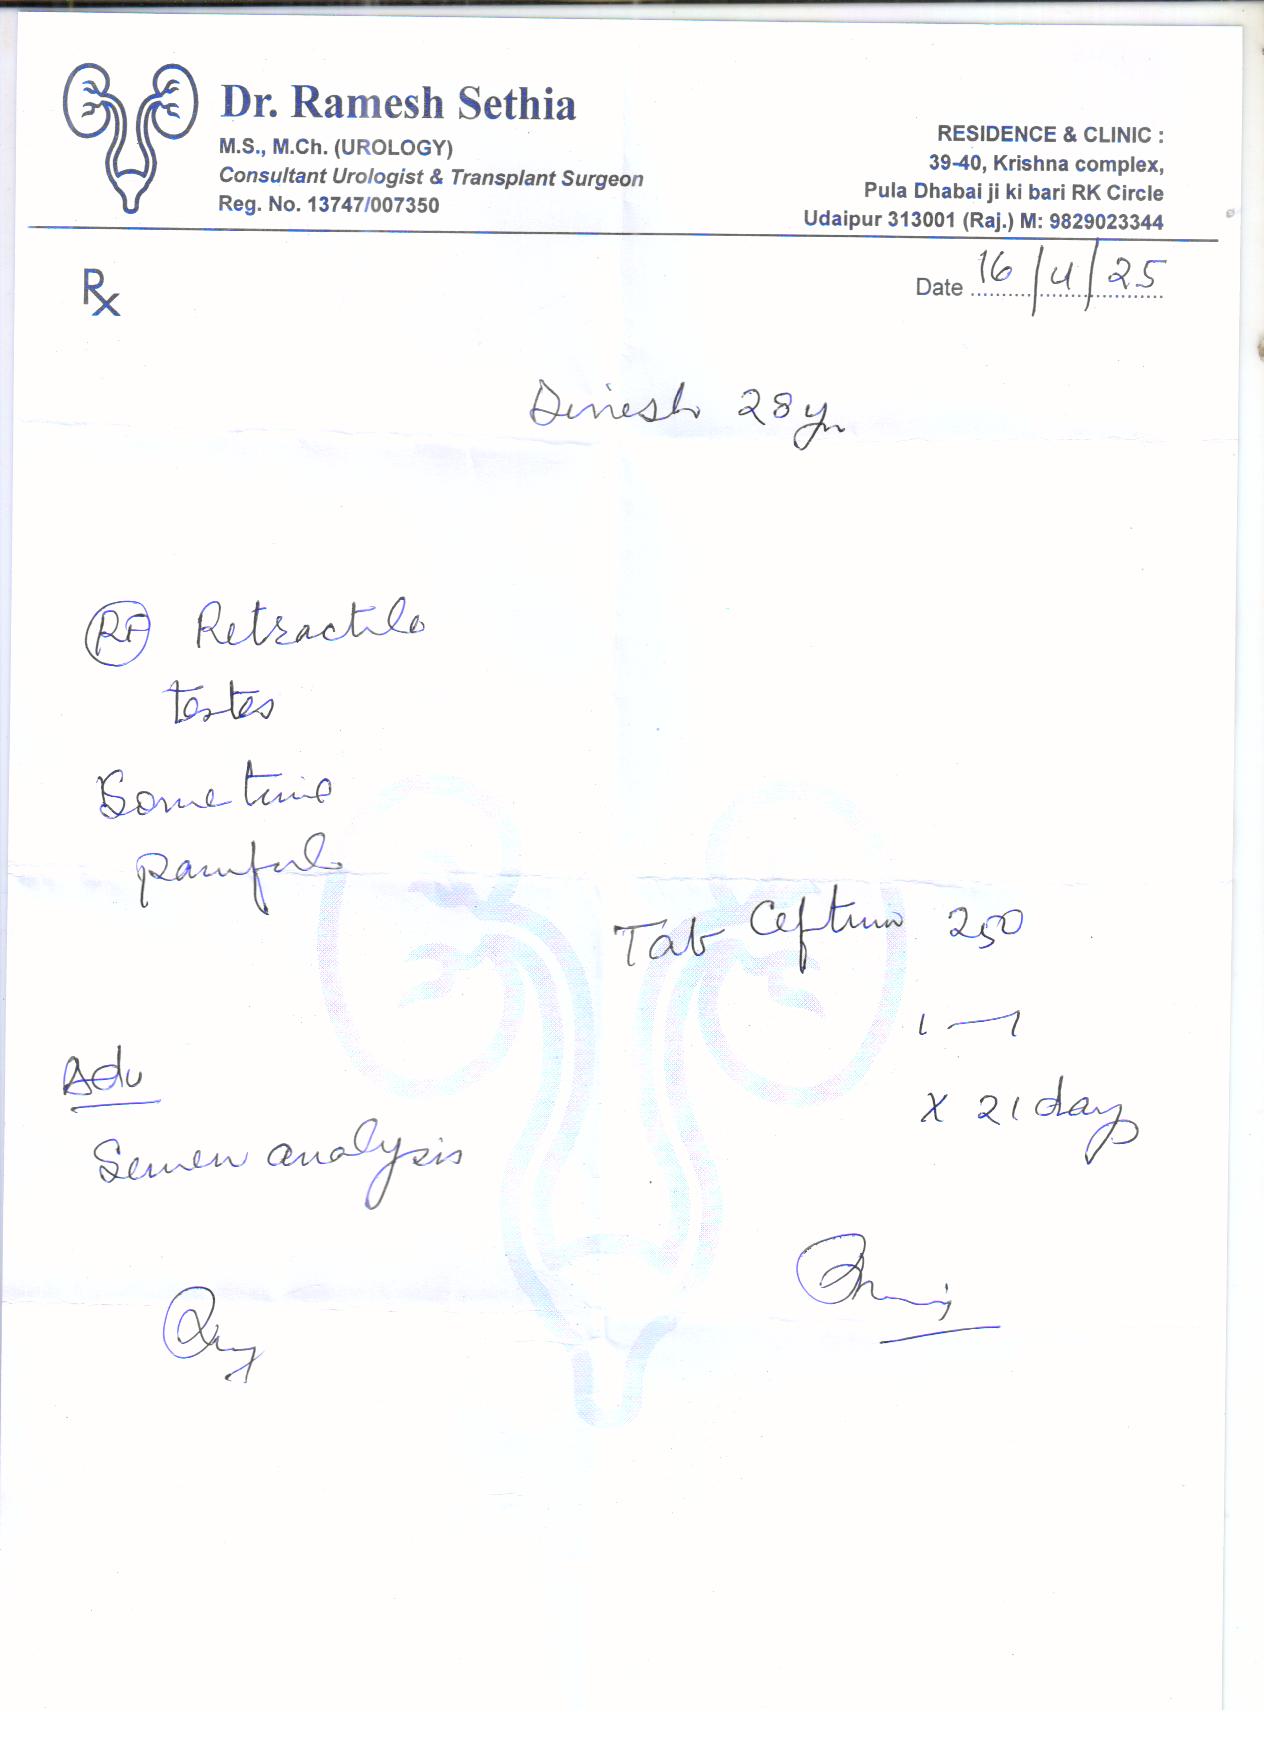 Dr. Ramesh Sethia
M.S., M.Ch. (UROLOGY)
Consultant Urologist & Transplant Surgeon
Reg. No. 13747/007350
RESIDENCE & CLINIC :
39-40, Krishna complex,
Pula Dhabai ji ki bari RK Circle
Udaipur 313001 (Raj.) M: 9829023344
Rx
Date 16/4/25
Dinesh 28 yr
RF Retractile
testes
Sometime
painful
Tab Ceftum 250
1 — 1
x 21 days
Adv
Semen analysis